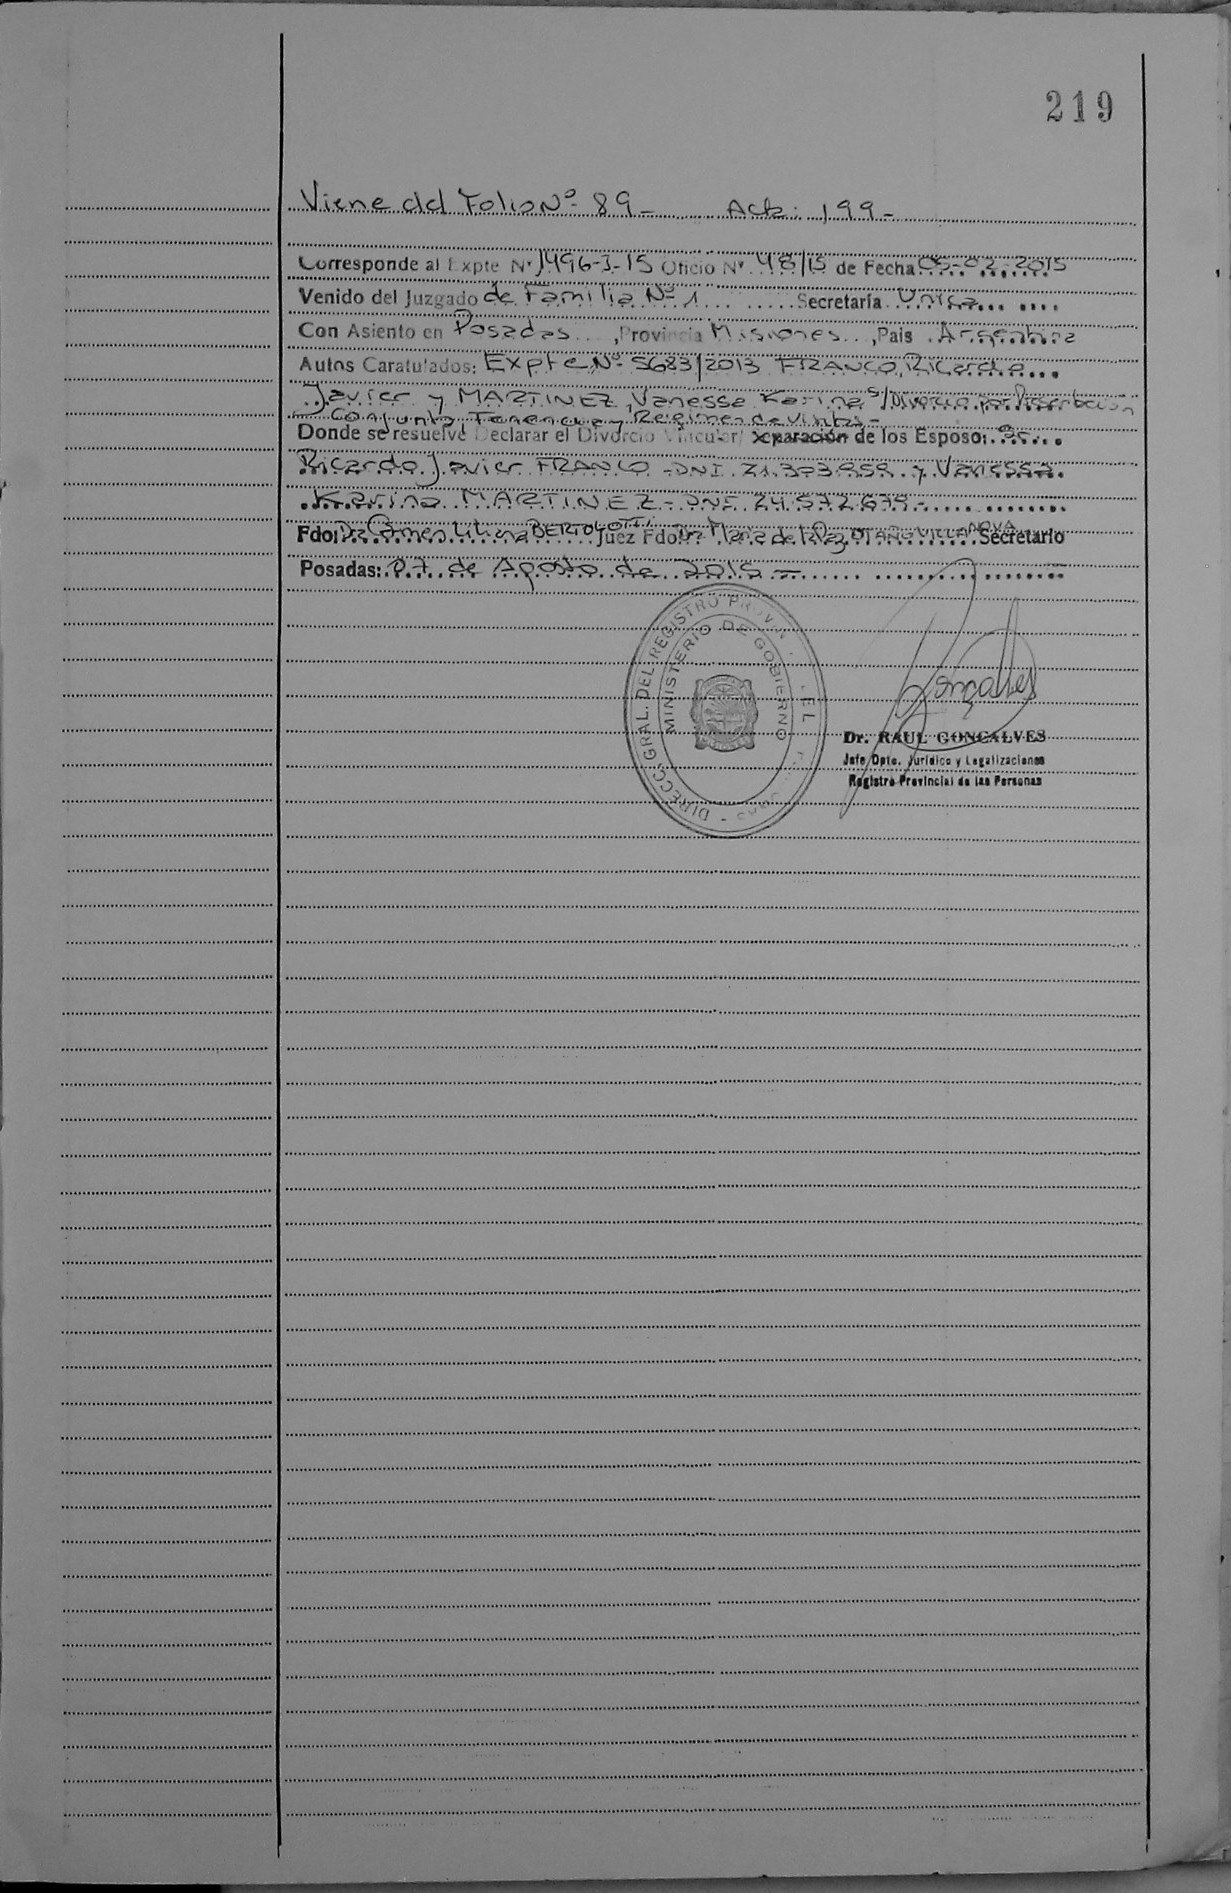 219
Viene del Folio Nº 89 - Acta: 199 -
Corresponde al Expte Nº 1496-I-15 Oficio Nº 48/15 de Fecha 05-02-2015
Venido del Juzgado de Familia Nº 1 Secretaría Unica
Con Asiento en Posadas, Provincia Misiones, Pais Argentina
Autos Caratulados: Expte Nº 5683/2013 FRANCO, Ricardo
Javier y MARTINEZ, Vanessa Karina S/ Divorcio por Presentación
Conjunta, Tenencia y Regimen de visitas -
Donde se resuelve Declarar el Divorcio Vincular / separación de los Esposo: os
Ricardo Javier FRANCO - DNI. 21.303.859 y Vanessa
Karina MARTINEZ - DNI. 24.572.679 -
Fdo: Dra Carmen Liliana BERTOLOTTI Juez Fdo: Dra Maria de la Paz VILLANOVA Secretario
Posadas: 07 de Agosto de 2015 -
DIRECC. GRAL. DEL REGISTRO PROV.
MINISTERIO DE GOBIERNO
Gonçalves
Dr. RAUL GONCALVES
Jefe Dpto. Jurídico y Legalizaciones
Registro Provincial de las Personas